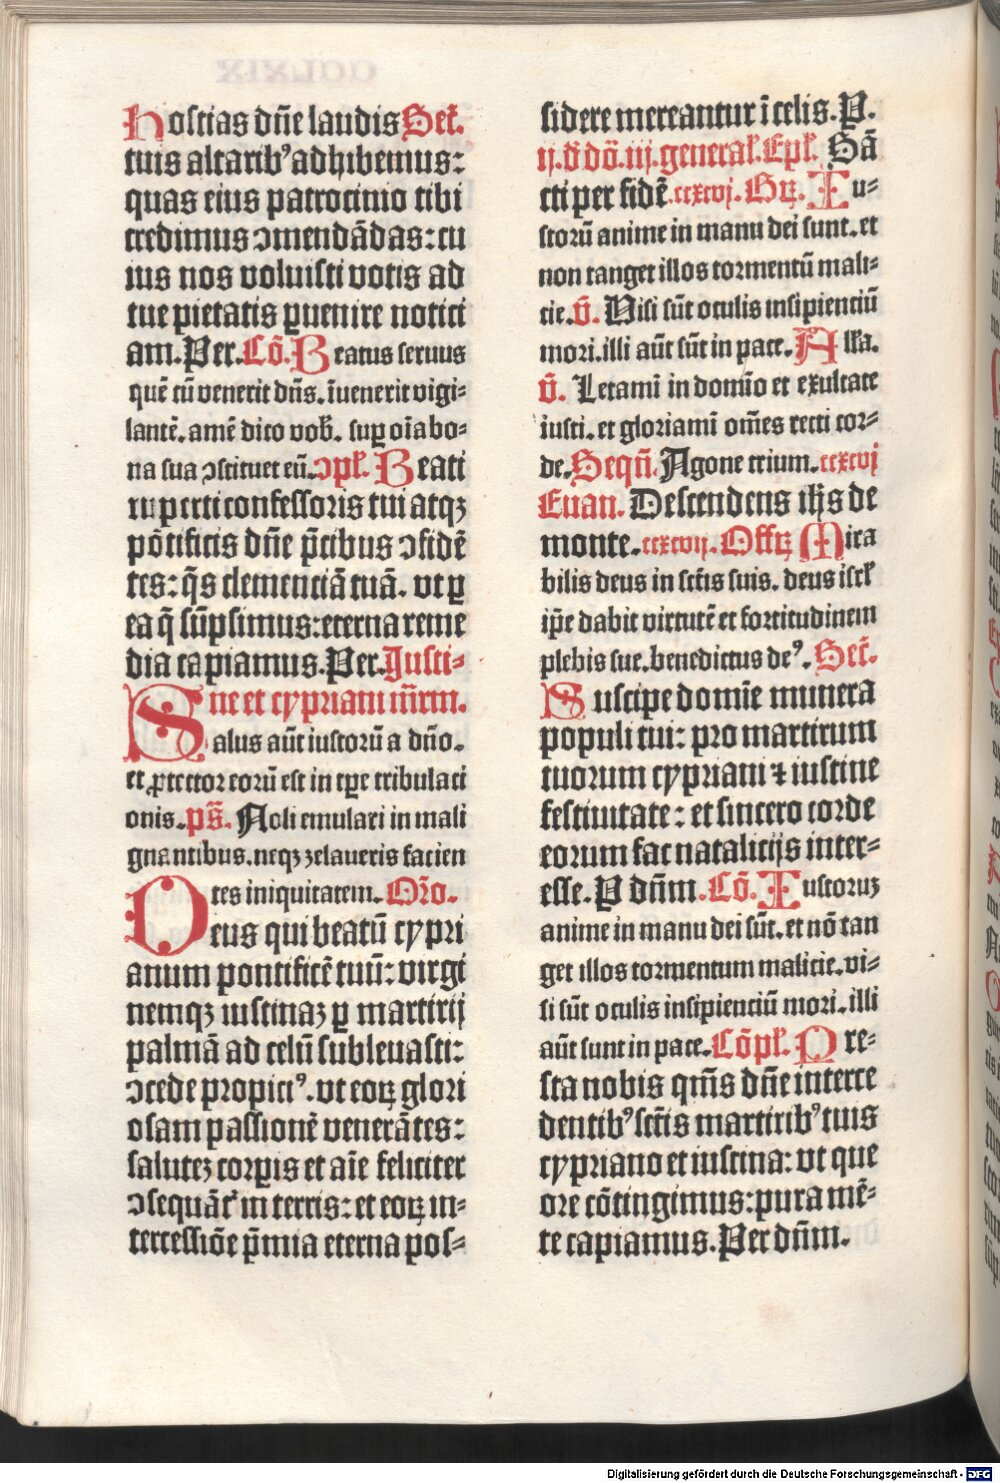 Hostias dn̄e laudis Secr̄.
tuis altarib⁹ adhibemus:
quas eius patrocinio tibi
credimus ꝯmendādas: cu
ius nos voluisti votis ad
tue pietatis ꝑuenire notici
am. Per. Cō. Beatus seruus
quē cū venerit dn̄s. īuenerit vigi⸗
lantē. amē dico vob̄. suꝑ oīa bo⸗
na sua ꝯstituet eū. ꝯpl̄. Beati
ruperti confessoris tui atqꝫ
pōtificis dn̄e p̄cibus ꝯfidē
tes: q̄s clemenciā tuā. vt ꝑ
ea q̄ sūpsimus: eterna reme
dia capiamus. Per. Justi⸗
ne et cypriani m̄rm.
Salus aūt iustorū a dn̄o.
et ꝓtector eorū est in tꝑe tribulaci
onis. ps̄. Noli emulari in mali
gnantibus. neqꝫ zelaueris facien
tes iniquitatem. Orō.
Deus qui beatū cypri
anum pontificē tuū: virgi
nemqꝫ iustinaꝫ ꝑ martirij
palmā ad celū subleuasti:
ꝯcede propici⁹. vt eoꝝ glori
osam passionē venerātes:
saluteꝫ corꝑis et aīe feliciter
ꝯsequāt᷑ in terris: et eoꝝ in⸗
tercessiōe p̄mia eterna pos⸗
sidere mereantur ī celis. P.
ij. d̄ dō. iij. general̄. Epl̄. Sā
cti per fidē. ccxcvj. Gꝝ. Iu⸗
storū anime in manu dei sunt. et
non tanget illos tormentū mali⸗
cie. v̄. Visi sūt oculis insipienciū
mori. illi aūt sūt in pace. All̄a.
v̄. Letami in domīo et exultate
iusti. et gloriami om̄es recti cor⸗
de. Seqn̄. Agone trium. ccxcvj
Euan. Descendens ih̄s de
monte. ccxcvij. Offꝝ Mira
bilis deus in sct̄is suis. deus isrl̄
ip̄e dabit virtutē et fortitudinem
plebis sue. benedictus de⁹. Secr̄.
Suscipe domīe munera
populi tui: pro martirum
tuorum cypriani ⁊ iustine
festiuitate: et sincero corde
eorum fac natalicijs inter⸗
esse. P dn̄m. Cō. Iustoruꝫ
anime in manu dei sūt. et nō tan
get illos tormentum malicie. vi⸗
si sūt oculis insipienciū mori. illi
aūt sunt in pace. Cōpl̄. Pre⸗
sta nobis qm̄s dn̄e interce
dentib⁹ sct̄is martirib⁹ tuis
cypriano et iustina: vt que
ore cōtingimus: pura mē⸗
te capiamus. Per dn̄m.
Digitalisierung gefördert durch die Deutsche Forschungsgemeinschaft - DFG